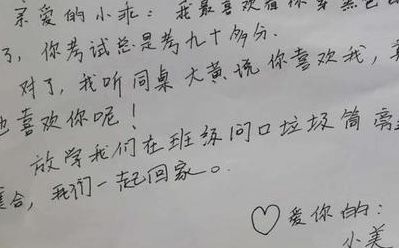 亲爱的小乖：我最喜欢看你穿黑色
了，你考试总是考九十多分.
对了，我听同桌大黄说你喜欢我，
也喜欢你呢！
放学我们在班级门口垃圾筒旁
合，我们一起回家。
♡爱你的：
小美